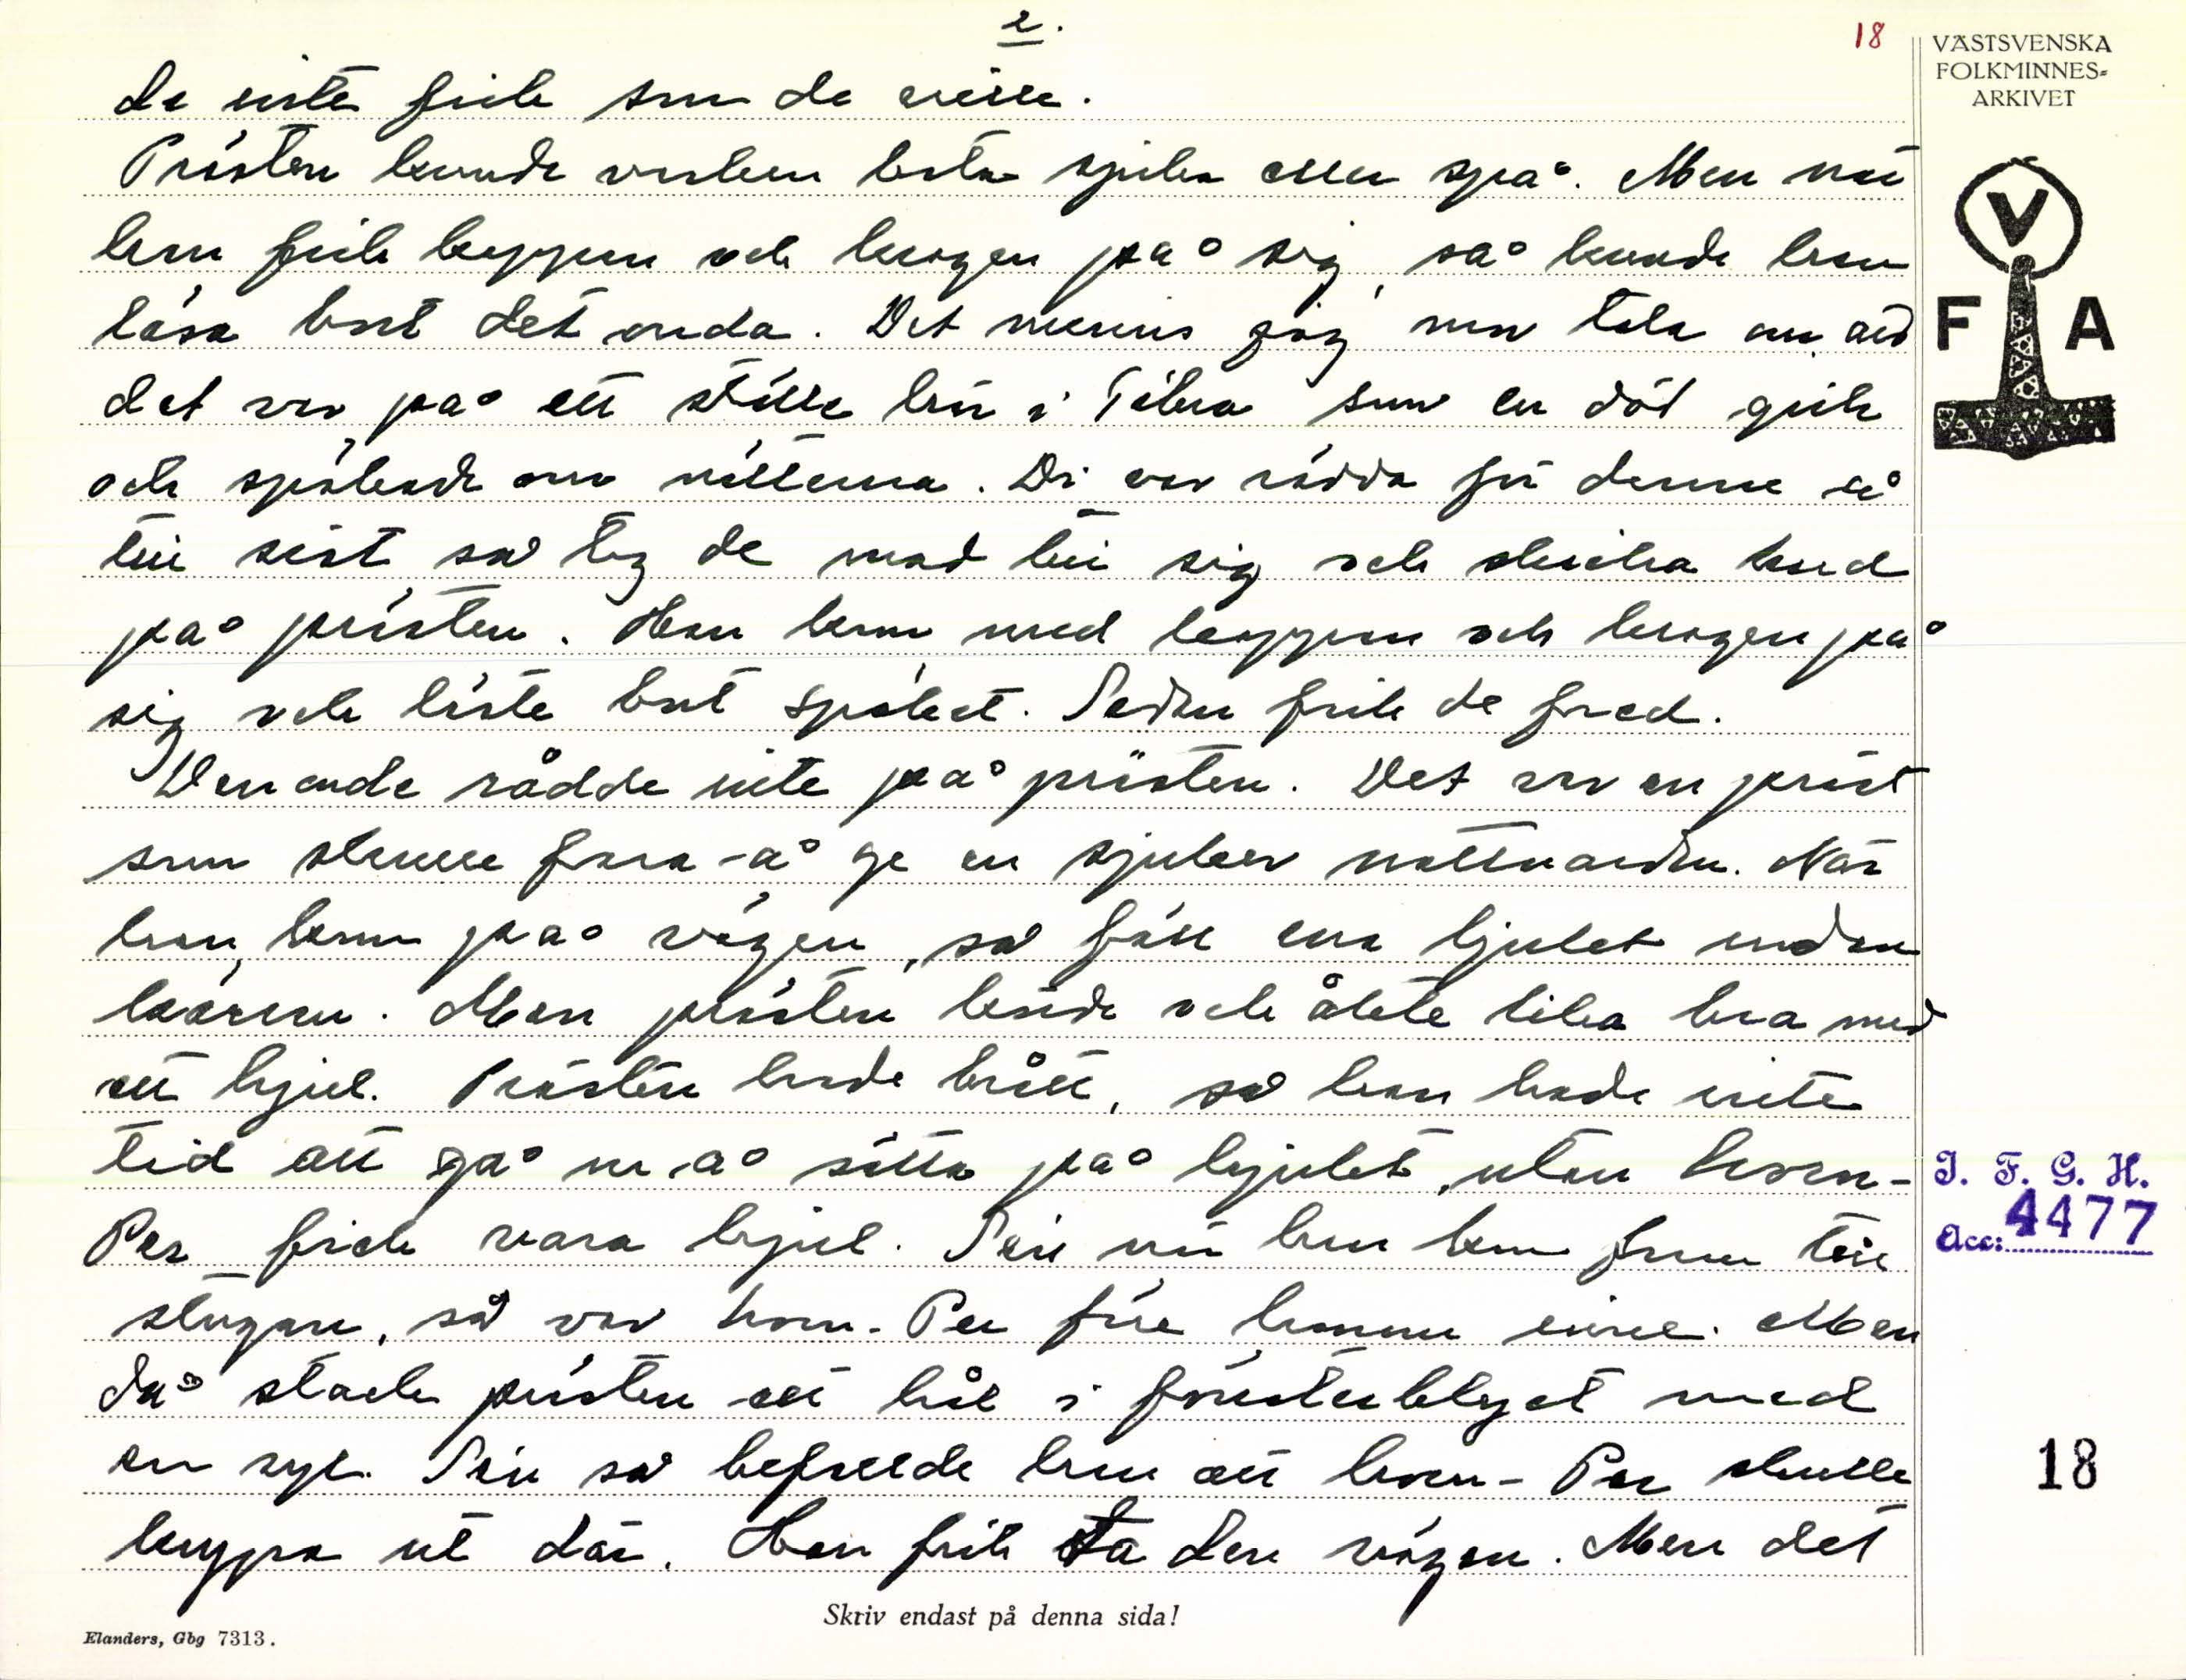 2.
18
VÄSTSVENSKA
FOLKMINNES=
ARKIVET
V
F A
de inte fick som de ville.
Prästen kunde varken bota sjuka eller spå. Men när
han fick kappan och kragen på sig, så kunde han
läsa bort det onda. Det minns jag mor tala om, att
det var på ett ställe här i som en död gick
och spökade om nätterna. Di var rädda för denne så
till sist så tog de mod till sig och skicka bud
på prästen. Han kom med kappan och kragen på
sig och läste bort spöket. Sedan fick de fred.
Den onde rådde inte på prästen. Det var en präst
som skulle fara å ge en sjuker nattvarden. När
han kom på vägen, så föll ena hjulet undan
kärran. Men prästen körde och åkte lika bra med
ett hjul. Prästen hade brått, så han hade inte
tid att gå ner å sätta på hjulet, utan horn-
Per fick vara hjul. Sen när han kom fram till
stugan, så var horn-Per före honom inne. Men
då stack prästen ett hål i fönsterblyet med
en syl. Sen så befallde han att horn-Per skulle
krypa ut där. Han fick ta den vägen. Men det
I. F. G. H.
Acc: 4477
18
Skriv endast på denna sida!
Elanders, Gbg 7313.